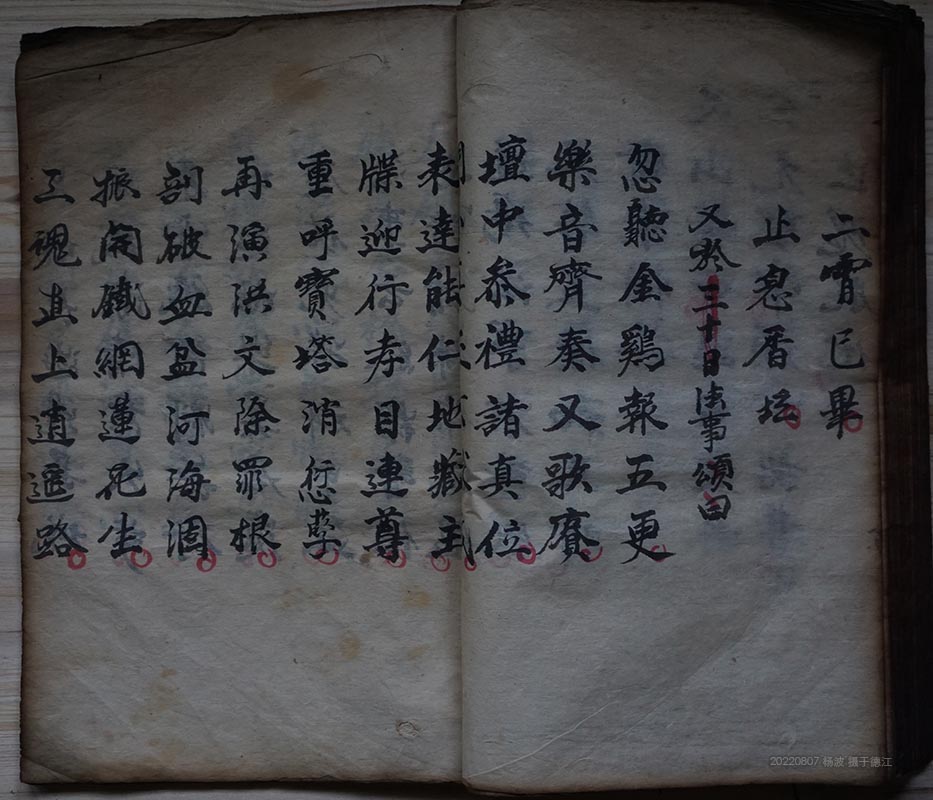 二霄已畢
止息香坛
又於三十日法事頌曰
忽聽金鷄報五更
樂音齊奏又歌賡
壇中叅禮諸真位
表達能仁地藏主
牒迎行孝目連尊
重呼寶塔消愆孽
再演洪文除罪根
剖破血盆河海涸
振開鐵網蓮花生
三魂直上逍遥路
20220807 杨波 摄于德江